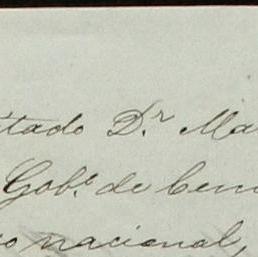 itado D.r Ma
Gob.e de Cem
o nacional,